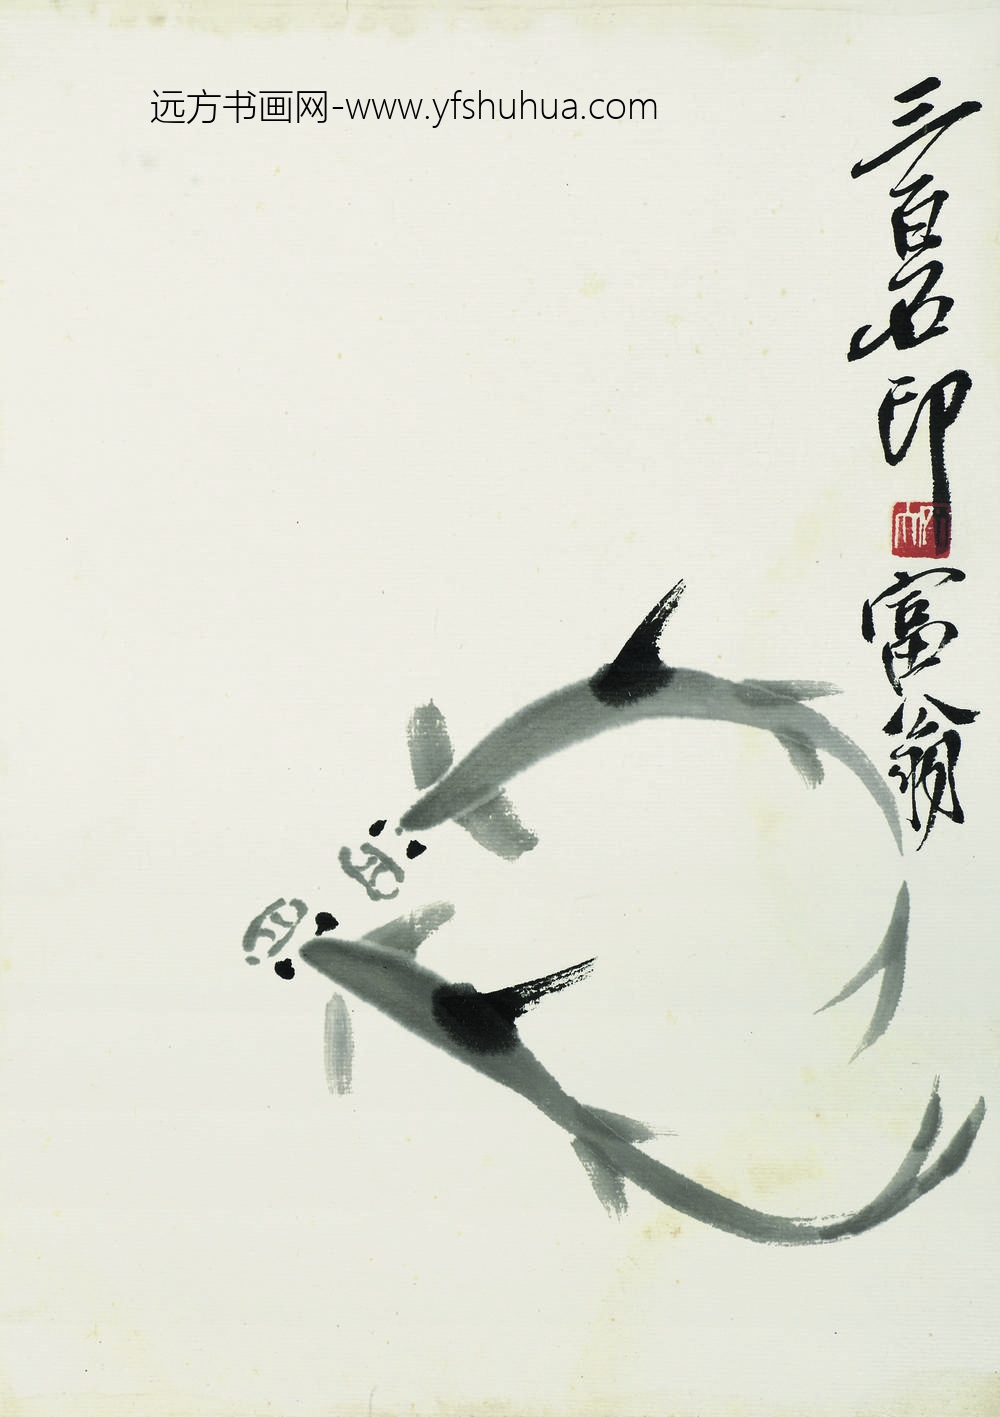 远方书画网-www.yfshuhua.com
三百石印
富翁